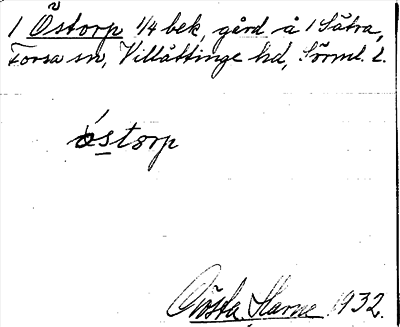 1 Östorp 1/4 bek, gård å 1 Sätra,
Forsa sn, Villåttinge hd, Sörml. l.
östorp
Gösta Harne 1932.